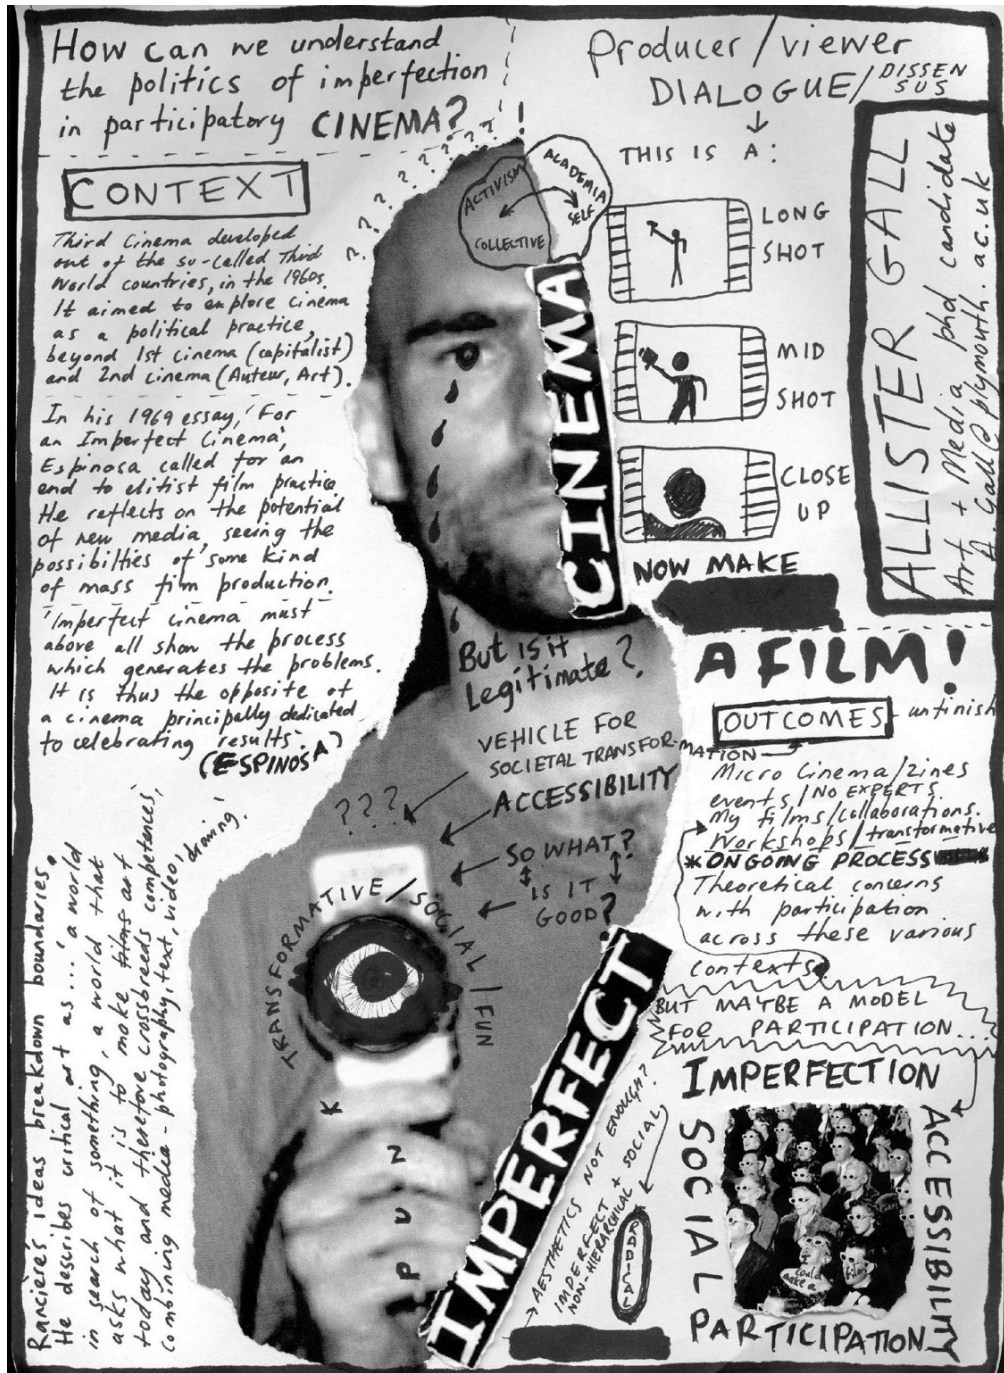 How can we understand
the politics of imperfection
in participatory CINEMA?
CONTEXT
Third Cinema developed
out of the so-called Third
World countries, in the 1960s.
It aimed to explore cinema
as a political practice,
beyond 1st cinema (capitalist)
and 2nd cinema (Auteur, Art).
In his 1969 essay, 'For
an Imperfect Cinema',
Espinosa called for an
end to elitist film practice
He reflects on the potential
of new media, seeing the
possibilties of 'some kind
of mass film production.
'Imperfect cinema must
above all show the process
which generates the problems.
It is thus the opposite of
a cinema principally dedicated
to celebrating results'.
(ESPINOSA)
Rancière's ideas breakdown boundaries.
He describes critical art as ... 'a world
in search of something, a world that
asks what it is to make films art
today and therefore crossbreeds competences,
combining media - photography, text, video, drawing.'
? ? ? ? ? ? ? ? ? ? ? ? !
ACTIVISM
COLLECTIVE
ACADEMIA
SELF
CINEMA
Producer/viewer
DIALOGUE/DISSEN
SUS
THIS IS A:
LONG
SHOT
MID
SHOT
CLOSE
UP
NOW MAKE
A FILM!
ALLISTER GALL
Art + Media phd candidate
A.Gall@plymouth.ac.uk
But is it
Legitimate?
VEHICLE FOR
SOCIETAL TRANSFORMATION
ACCESSIBILITY
???
SO WHAT?
IS IT
GOOD?
TRANSFORMATIVE/SOCIAL/FUN
PUNK
IMPERFECT
OUTCOMES - unfinish
Micro Cinema/Zines
events/NO EXPERTS.
My films/collaborations.
Workshops/transformative
*ONGOING PROCESS
Theoretical concerns
with participation
across these various
contexts.
BUT MAYBE A MODEL
FOR PARTICIPATION...
IMPERFECTION
ACCESSIBILITY
SOCIAL
PARTICIPATION
could
make a
film
AESTHETICS NOT ENOUGH?
IMPERFECT + SOCIAL
NON-HIERARCHICAL
RADICAL